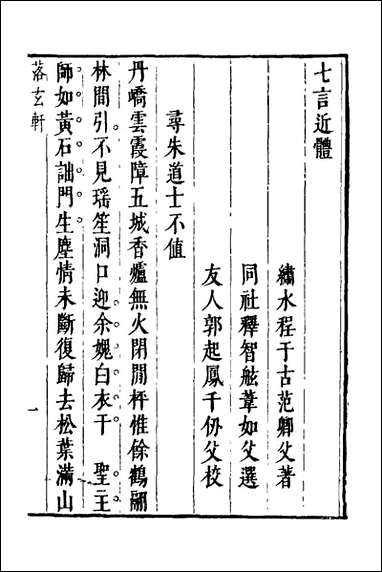 七言近體
繡水程于古范卿父著
同社釋智舷葦如父選
友人郭起鳳千仞父校
尋朱道士不值
丹嶠雲霞障五城香爐無火閉閒枰惟餘鶴翮
林間引不見瑤笙洞口迎余媿白衣干 聖主
師如黃石詘門生塵情未斷復歸去松葉滿山
落玄軒
一